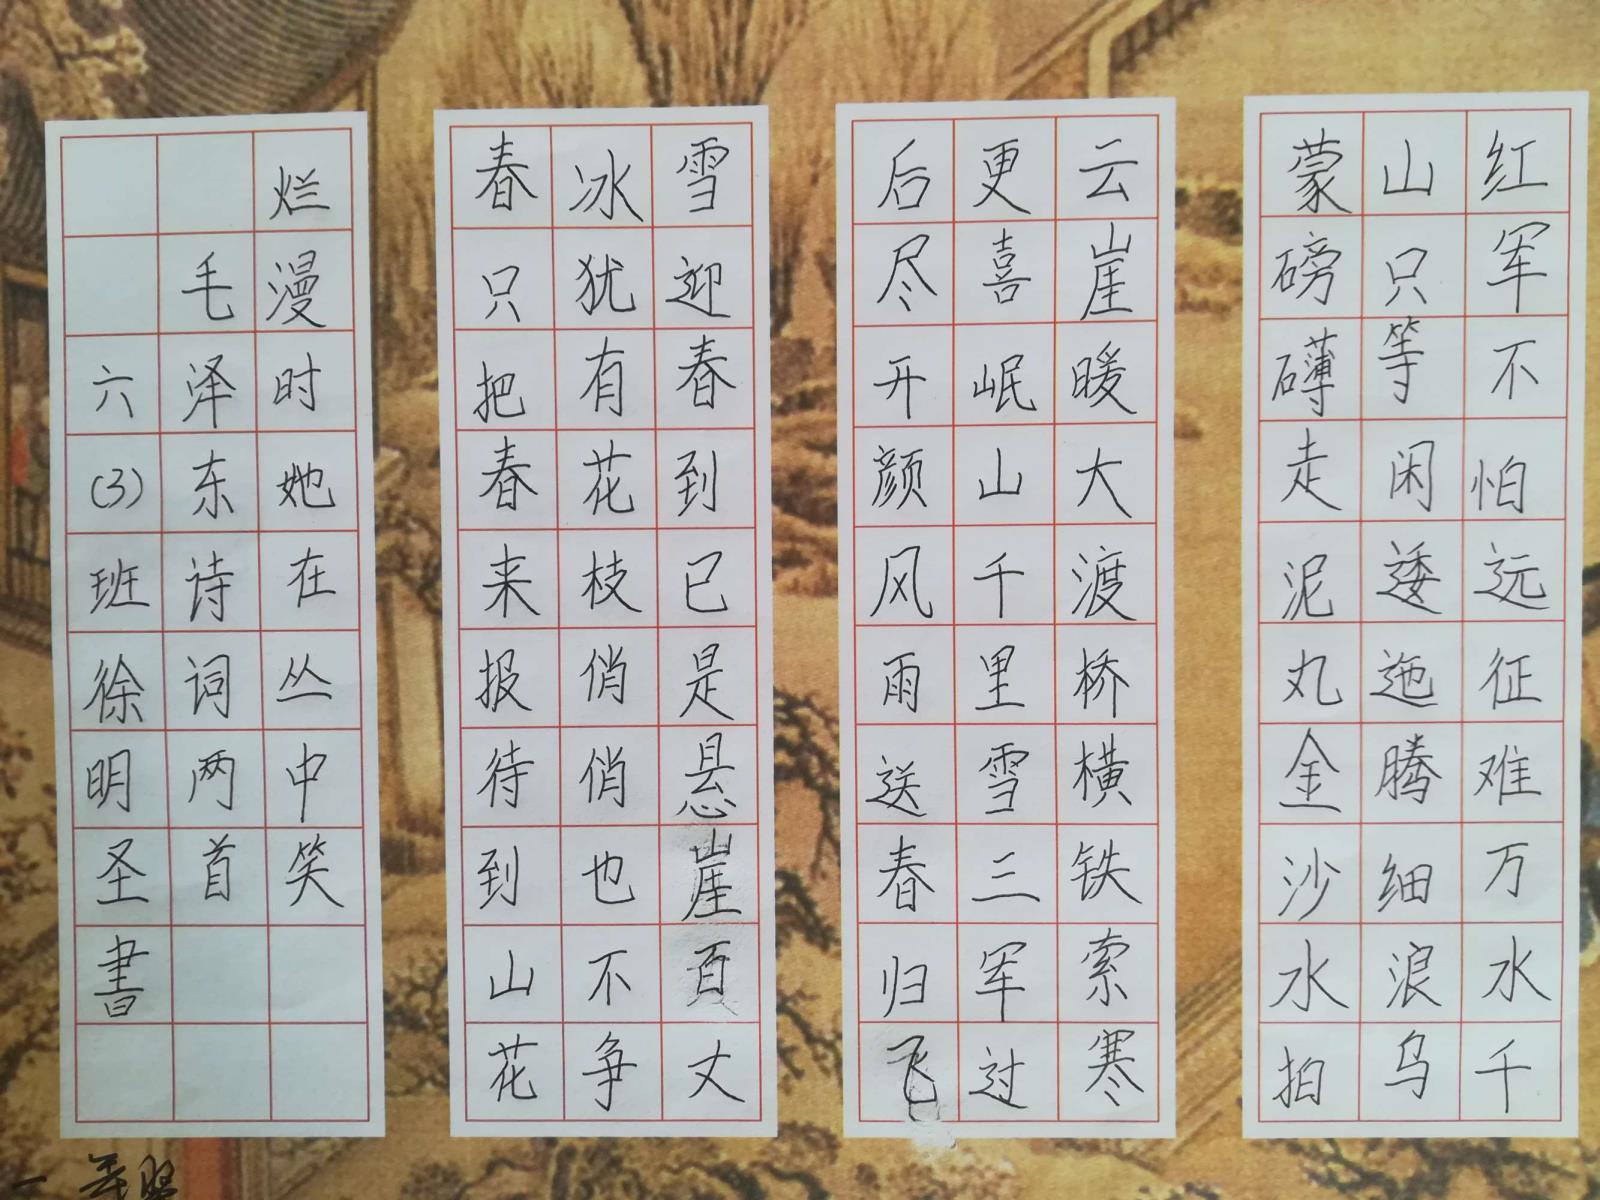 红军不怕远征难万水千
山只等闲逶迤腾细浪乌
蒙磅礴走泥丸金沙水拍
云崖暖大渡桥横铁索寒
更喜岷山千里雪三军过
后尽开颜风雨送春归飞
雪迎春到已是悬崖百丈
冰犹有花枝俏俏也不争
春只把春来报待到山花
烂漫时她在丛中笑
毛泽东诗词两首
六(3)班徐明圣書